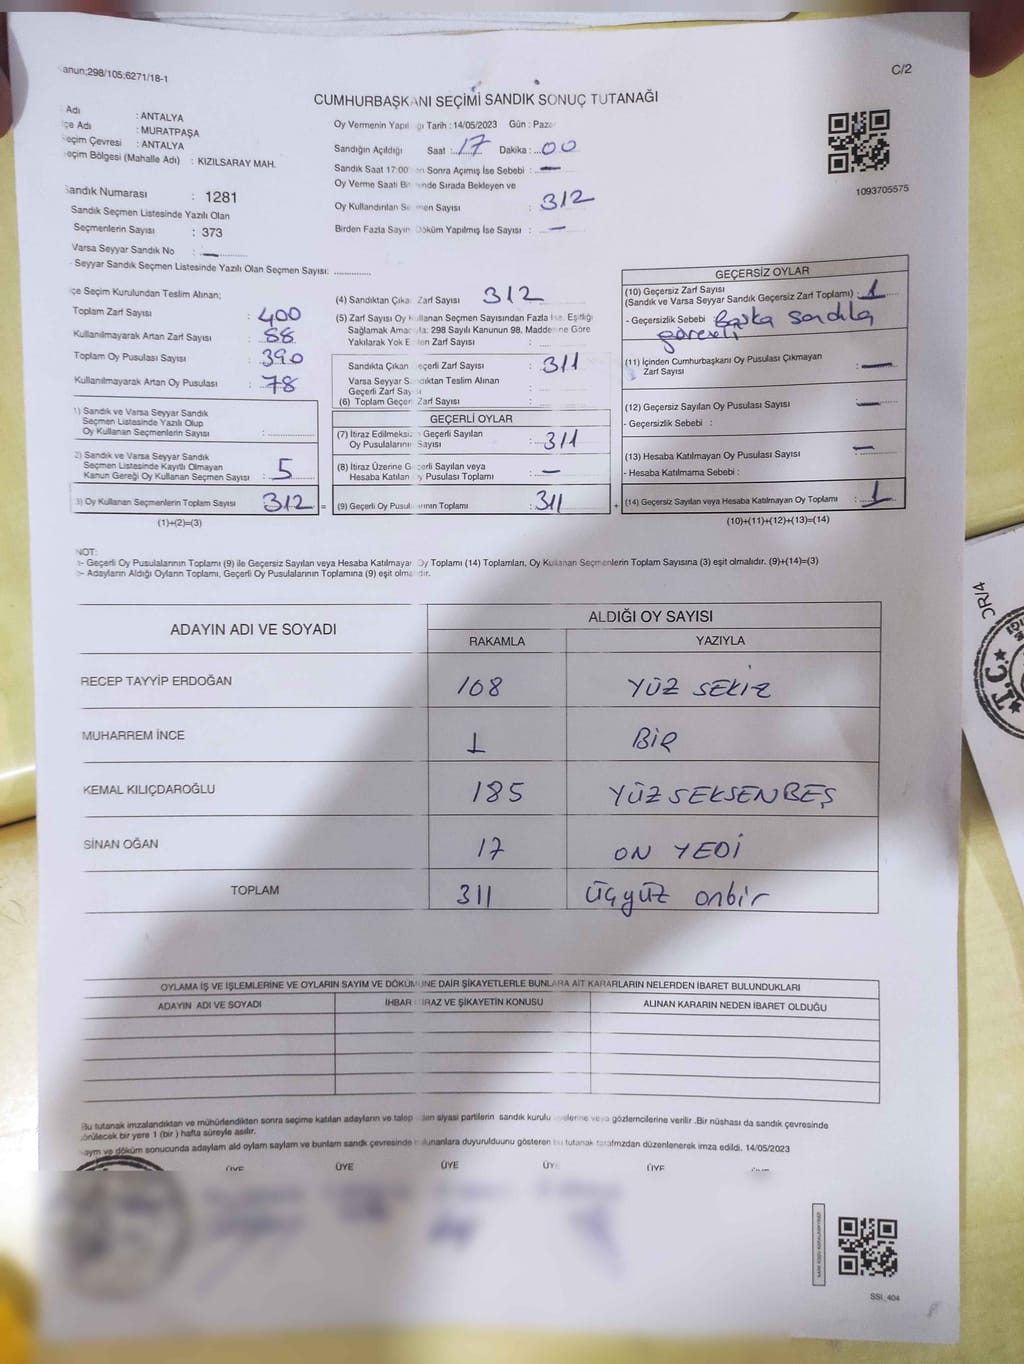 anun;298/105;6271/18-1
C/2
CUMHURBAŞKANI SEÇİMİ SANDIK SONUÇ TUTANAĞI
Adı : ANTALYA
çe Adı : MURATPAŞA
eçim Çevresi : ANTALYA
eçim Bölgesi (Mahalle Adı) : KIZILSARAY MAH.
Sandık Numarası : 1281
Sandık Seçmen Listesinde Yazılı Olan
Seçmenlerin Sayısı : 373
Varsa Seyyar Sandık No : —
Seyyar Sandık Seçmen Listesinde Yazılı Olan Seçmen Sayısı: ..............
Oy Vermenin Yapıl ğı Tarih : 14/05/2023 Gün : Paza
Sandığın Açıldığı Saat : 17 Dakika : 00
Sandık Saat 17:00 en Sonra Açımış İse Sebebi : —
Oy Verme Saati Bi inde Sırada Bekleyen ve
Oy Kullandırılan Se men Sayısı : 312
Birden Fazla Sayım Döküm Yapılmış İse Sayısı : —
1093705575
çe Seçim Kurulundan Teslim Alınan;
Toplam Zarf Sayısı : 400
Kullanılmayarak Artan Zarf Sayısı : 88
Toplam Oy Pusulası Sayısı : 390
Kullanılmayarak Artan Oy Pusulası : 78
1) Sandık ve Varsa Seyyar Sandık
Seçmen Listesinde Yazılı Olup
Oy Kullanan Seçmenlerin Sayısı :
2) Sandık ve Varsa Seyyar Sandık
Seçmen Listesinde Kayıtlı Olmayan
Kanun Gereği Oy Kullanan Seçmen Sayısı : 5
3) Oy Kullanan Seçmenlerin Toplam Sayısı 312 =
(1)+(2)=(3)
(4) Sandıktan Çıka Zarf Sayısı 312
(5) Zarf Sayısı Oy Kullanan Seçmen Sayısından Fazla İse, Eşitliği
Sağlamak Amac la: 298 Sayılı Kanunun 98. Maddesine Göre
Yakılarak Yok E en Zarf Sayısı :
Sandıkta Çıkan eçerli Zarf Sayısı : 311
Varsa Seyyar S ndıktan Teslim Alınan
Geçerli Zarf Say :
(6) Toplam Geçer Zarf Sayısı :
GEÇERLİ OYLAR
(7) İtiraz Edilmeksiz Geçerli Sayılan
Oy Pusulalarını Sayısı : 311
(8) İtiraz Üzerine G çerli Sayılan veya
Hesaba Katılan y Pusulası Toplamı —
(9) Geçerli Oy Pusul arının Toplamı : 311 +
GEÇERSİZ OYLAR
(10) Geçersiz Zarf Sayısı
(Sandık ve Varsa Seyyar Sandık Geçersiz Zarf Toplamı) : 1
- Geçersizlik Sebebi Başka sandıkla
(11) İçinden Cumhurbaşkanı Oy Pusulası Çıkmayan
Zarf Sayısı : —
(12) Geçersiz Sayılan Oy Pusulası Sayısı : —
- Geçersizlik Sebebi :
(13) Hesaba Katılmayan Oy Pusulası Sayısı : —
- Hesaba Katılmama Sebebi :
(14) Geçersiz Sayılan veya Hesaba Katılmayan Oy Toplamı : 1
(10)+(11)+(12)+(13)=(14)
NOT:
a- Geçerli Oy Pusulalarının Toplamı (9) ile Geçersiz Sayılan veya Hesaba Katılmayan Oy Toplamı (14) Toplamları, Oy Kullanan Seçmenlerin Toplam Sayısına (3) eşit olmalıdır. (9)+(14)=(3)
b- Adayların Aldığı Oyların Toplamı, Geçerli Oy Pusulalarının Toplamına (9) eşit olmalıdır.
ADAYIN ADI VE SOYADI
ALDIĞI OY SAYISI
RAKAMLA YAZIYLA
RECEP TAYYİP ERDOĞAN 108 YÜZ SEKİZ
MUHARREM İNCE 1 BİR
KEMAL KILIÇDAROĞLU 185 YÜZSEKSENBEŞ
SİNAN OĞAN 17 ON YEDİ
TOPLAM 311 üçyüz onbir
OYLAMA İŞ VE İŞLEMLERİNE VE OYLARIN SAYIM VE DÖKÜMÜNE DAİR ŞİKAYETLERLE BUNLARA AİT KARARLARIN NELERDEN İBARET BULUNDUKLARI
ADAYIN ADI VE SOYADI İHBAR İTİRAZ VE ŞİKAYETİN KONUSU ALINAN KARARIN NEDEN İBARET OLDUĞU
Bu tutanak imzalandıktan ve mühürlendikten sonra seçime katılan adayların ve talep eden siyasi partilerin sandık kurulu üyelerine veya gözlemcilerine verilir .Bir nüshası da sandık çevresinde
görülecek bir yere 1 (bir ) hafta süreyle asılır.
aym ve döküm sonucunda adaylam ald oylam saylam ve bunlam sandık çevresinde bulunanlara duyurulduunu gösteren bu tutanak tarafmzdan düzenlenerek imza edildi. 14/05/2023
ÜYE ÜYE ÜYE ÜYE ÜYE
SSI_404
T.C.